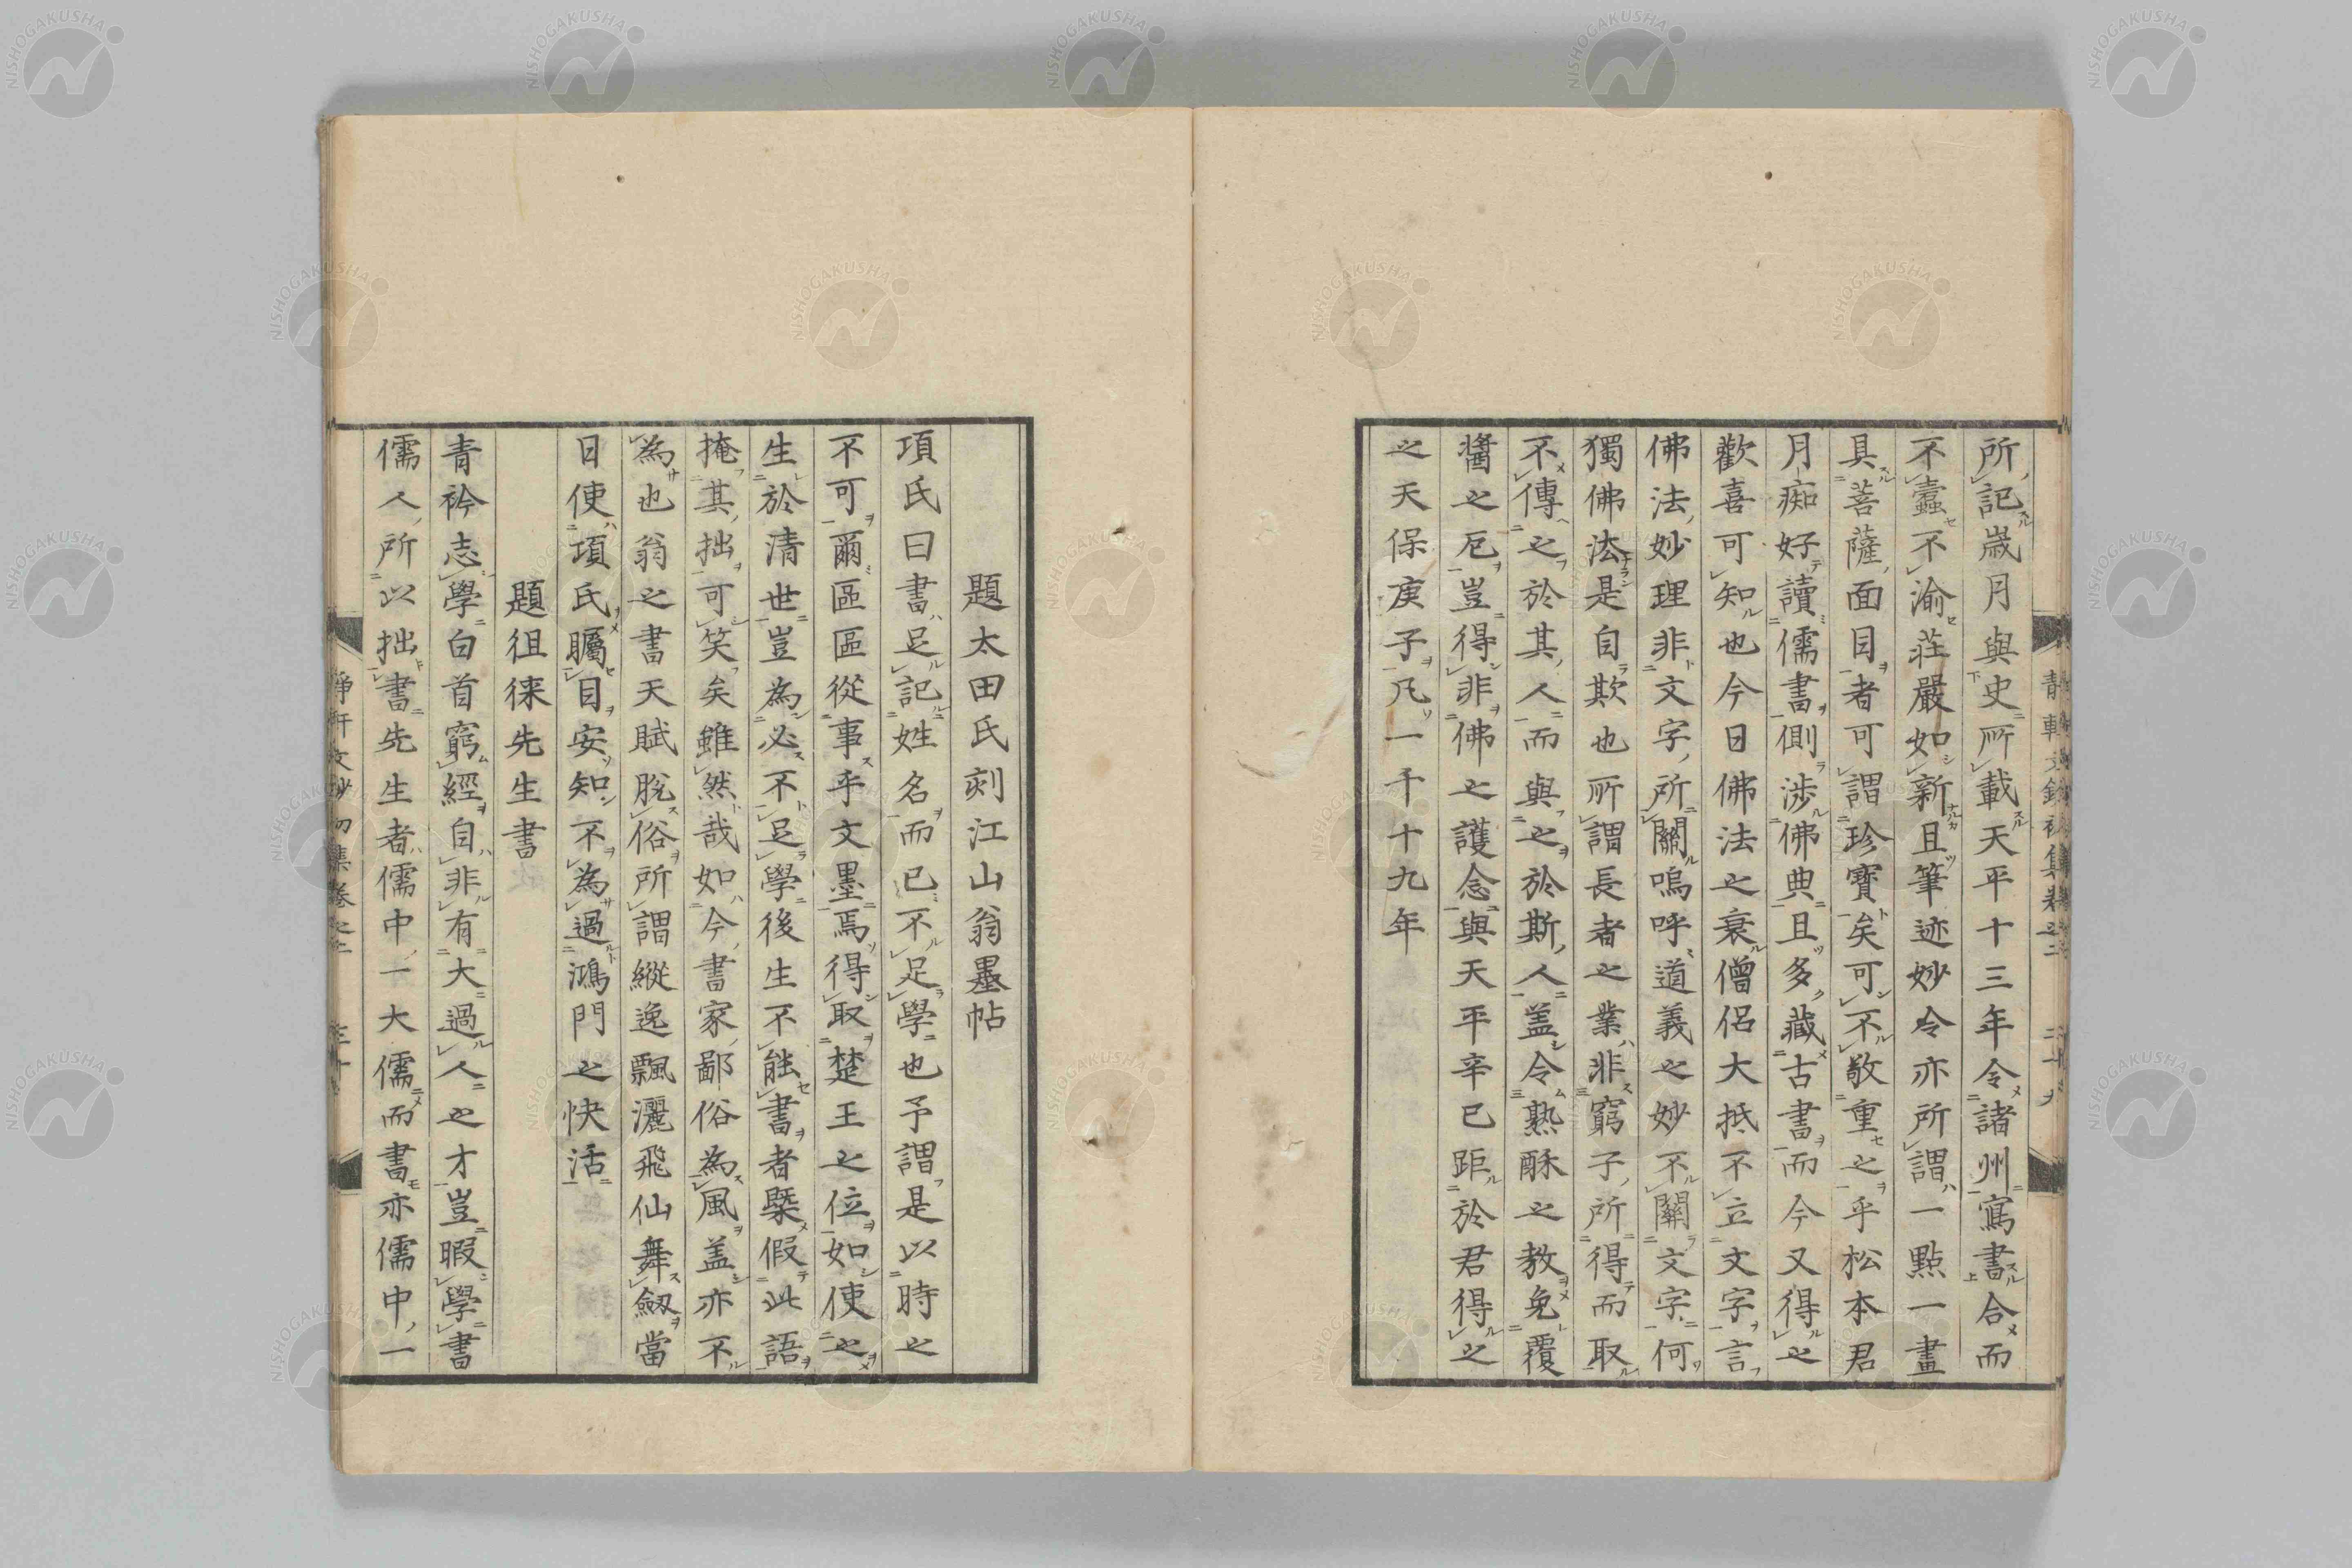 所記歳月與史所載天平十三年令諸州寫書合而
不蠹不渝荘嚴如新且筆迹妙令亦所謂一點一畫
具菩薩面目者可謂珍寶矣可不敬重之乎松本君
月痴好讀儒書側渉佛典且多藏古書而今又得之
歡喜可知也今日佛法之衰僧侶大抵不立文字言
佛法妙理非文字所關嗚呼道義之妙不關文字何
獨佛法是自欺也所謂長者之業非窮子所得而取
不傳之於其人而與之於斯人盖令熟酥之教免覆
醤之厄豈得非佛之護念與天平辛巳距於君得之
之天保庚子凡一千十九年
題太田氏刻江山翁墨帖
項氏曰書足記姓名而已不足學也予謂是以時之
不可爾區區從事乎文墨焉得取楚王之位如使之
生於清世豈為必不足學後生不能書者槩假此語
掩其拙可笑矣雖然哉如今書家鄙俗為風盖亦不
為也翁之書天賦脱俗所謂縱逸飄灑飛仙舞劔當
日使項氏矚目安知不為過鴻門之快活
題徂徠先生書
青衿志學白首窮經自非有大過人之才豈暇學書
儒人所以拙書先生者儒中一大儒而書亦儒中一
NISHOGAKUSHA